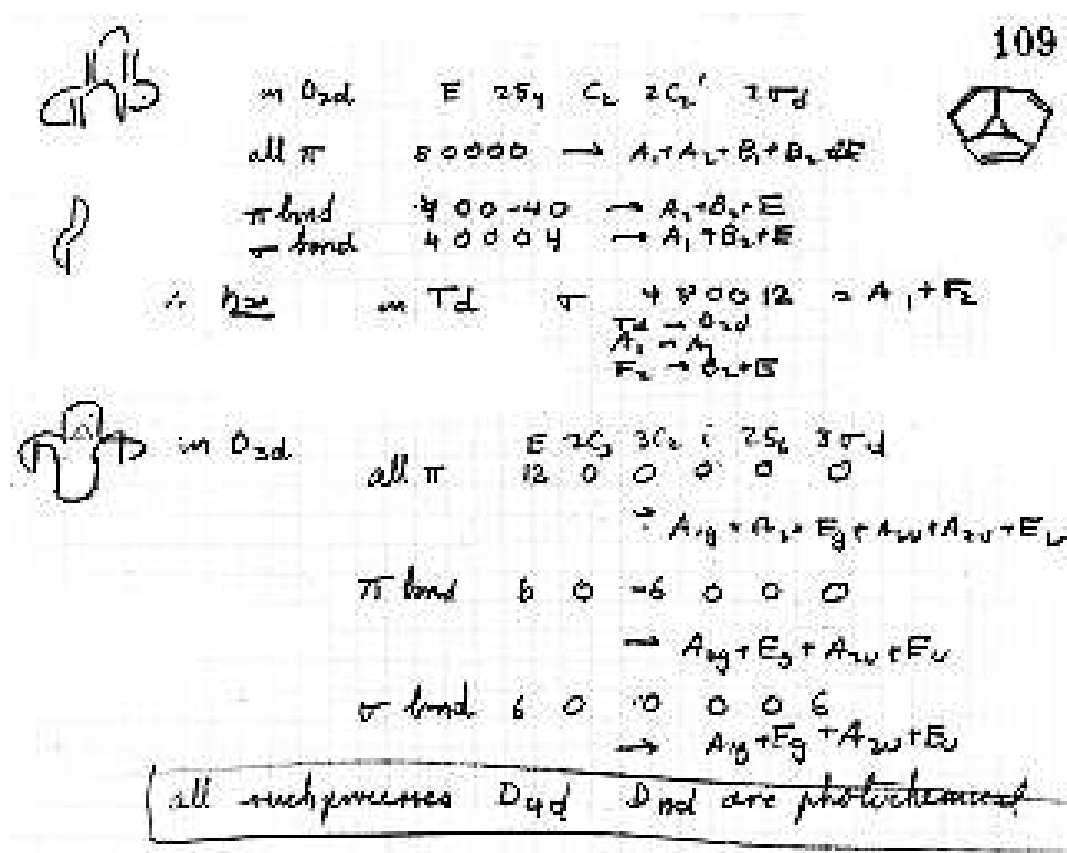 109
in D2d E 2S4 C2 2C2' 2σd
all π 8 0 0 0 0 → A1+A2+B1+B2+2E
π bond 4 0 0 -4 0 → A2+B1+E
σ bond 4 0 0 0 4 → A1+B2+E
∴ in Td σ 4 8 0 0 12 = A1+F2
Td → D2d
A1 → A1
F2 → B2+E
in D3d E 2C3 3C2 i 2S6 3σd
all π 12 0 0 0 0 0
π bond 6 0 -6 0 0 0
→ A2g+Eg+A1u+Eu
σ bond 6 0 0 0 0 6
→ A1g+Eg+A2u+Eu
all such processes D4d Dnd are photochemical